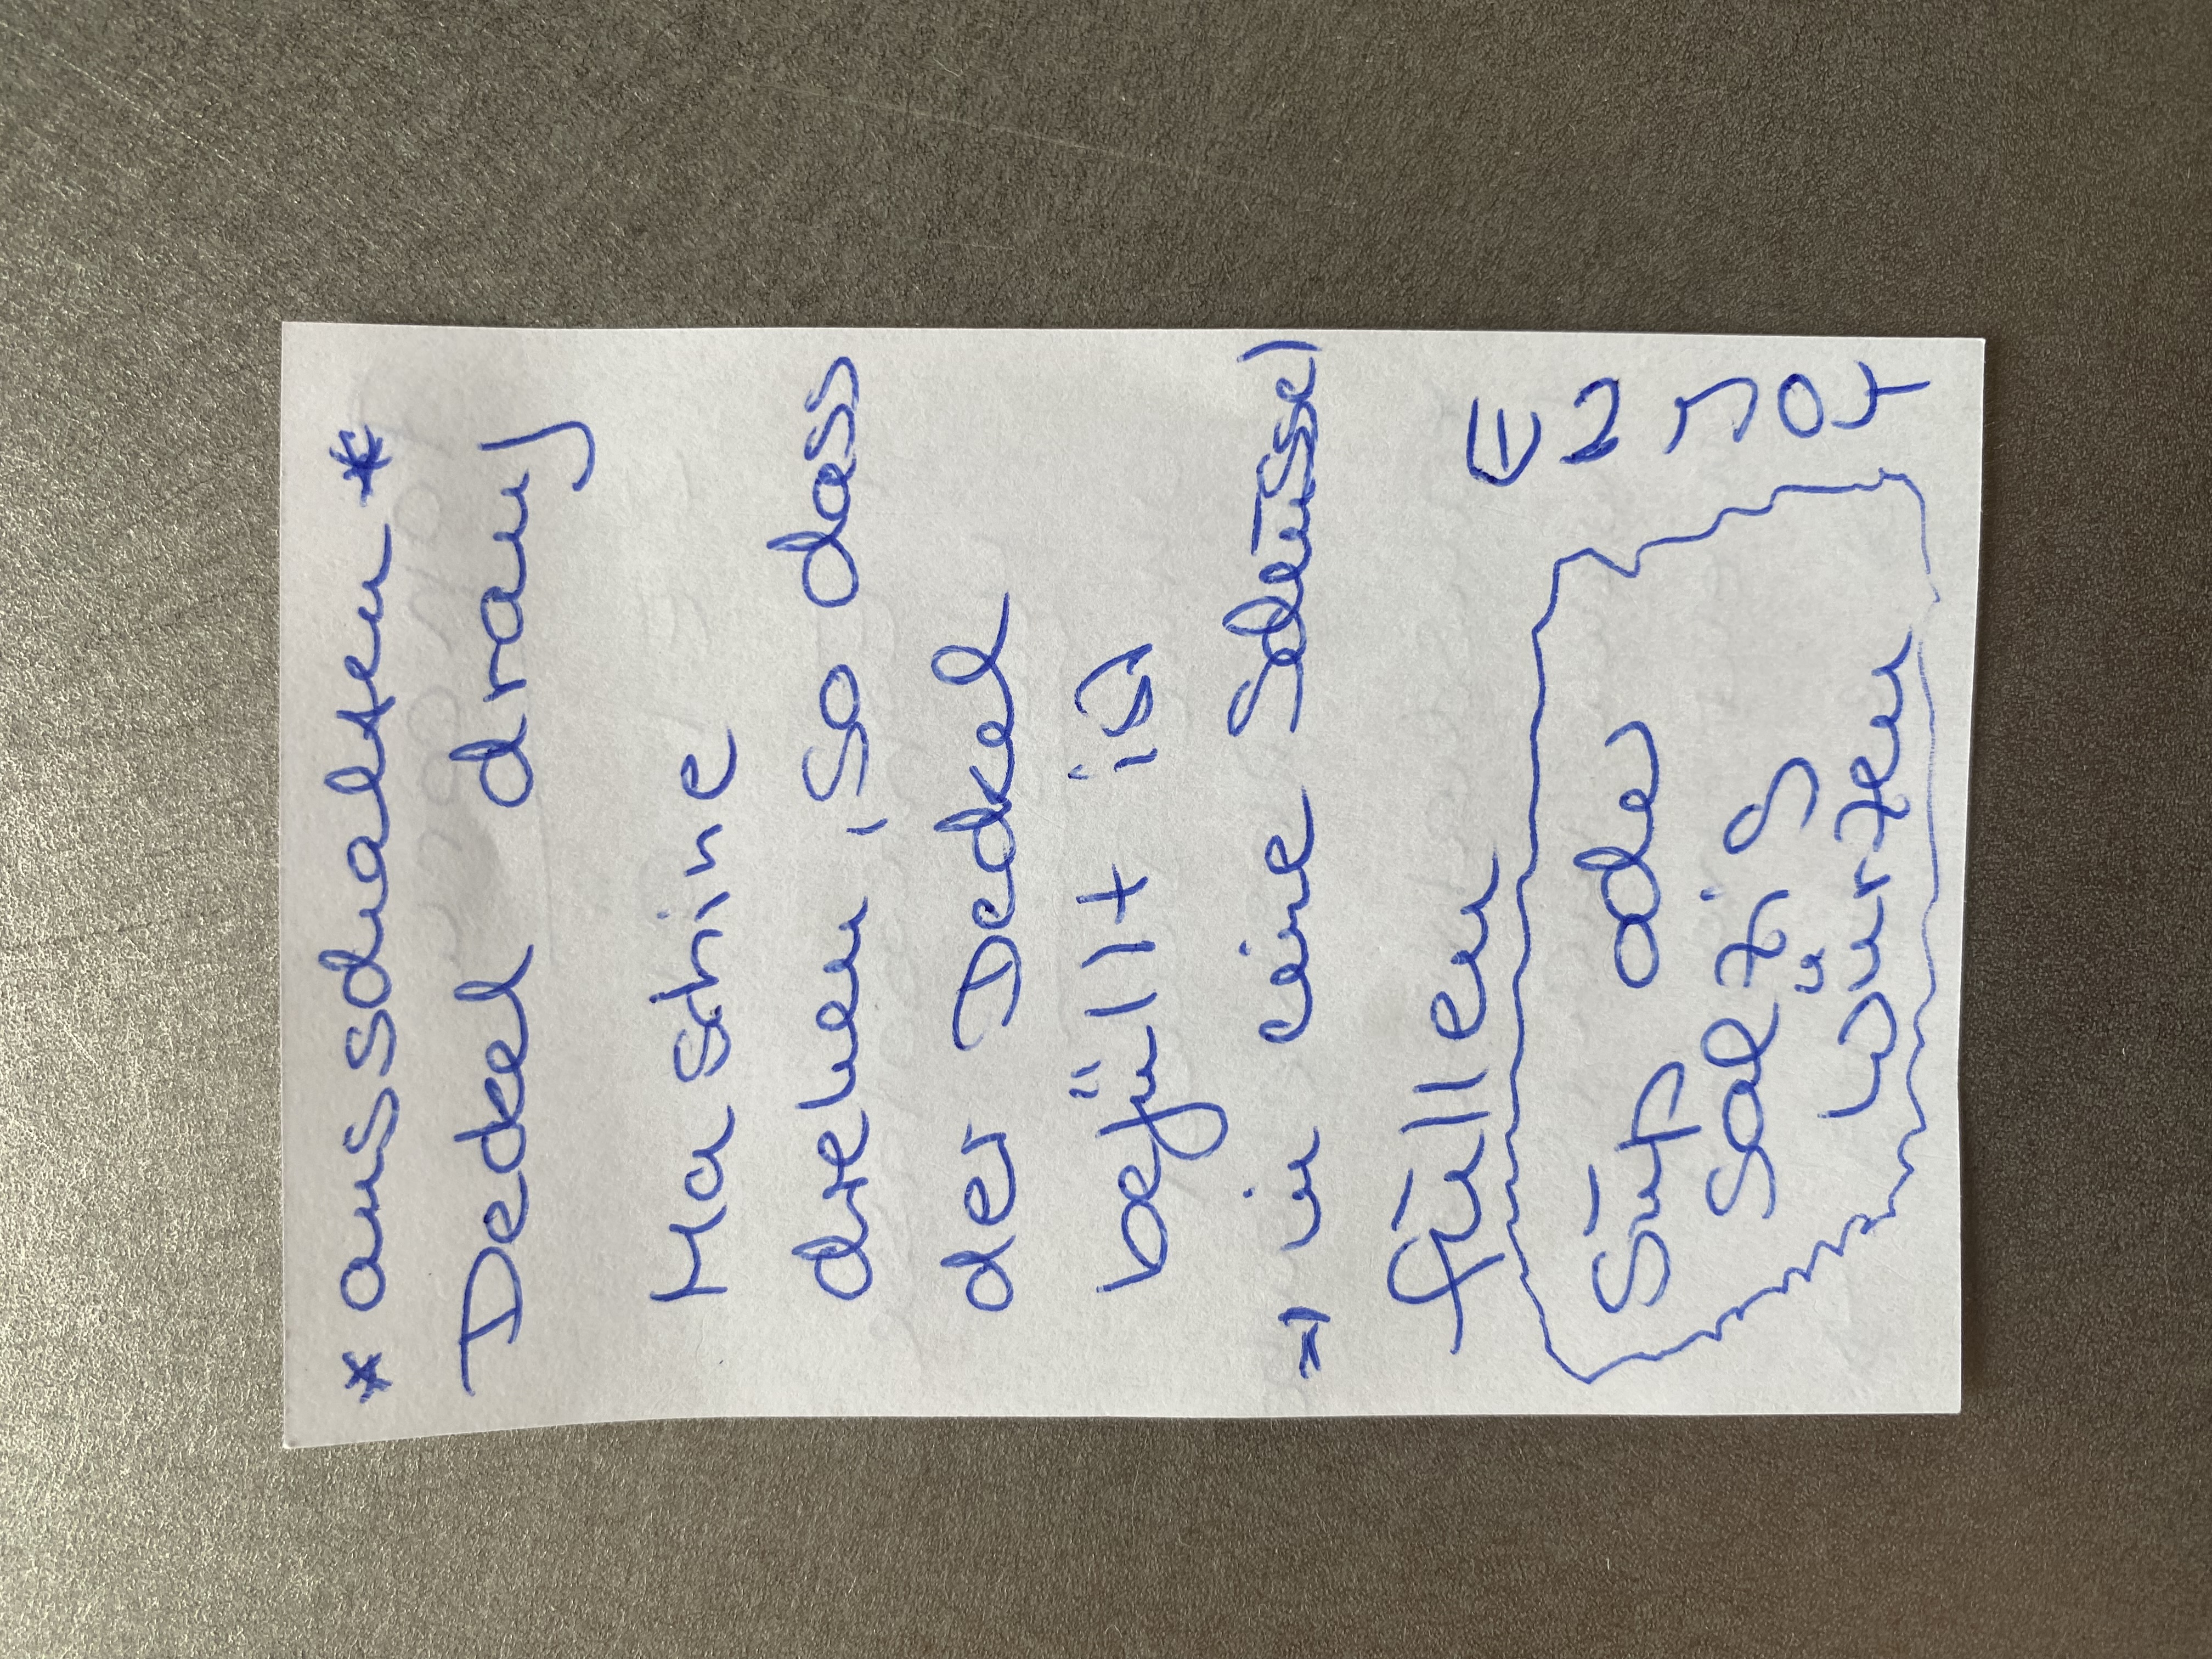 * ausschalten *
Deckel drauf
Maschine
drehen, so dass
der Deckel
befüllt ist
* in eine Schüssel
füllen
Süß oder
salzig
würzen
ENJOY